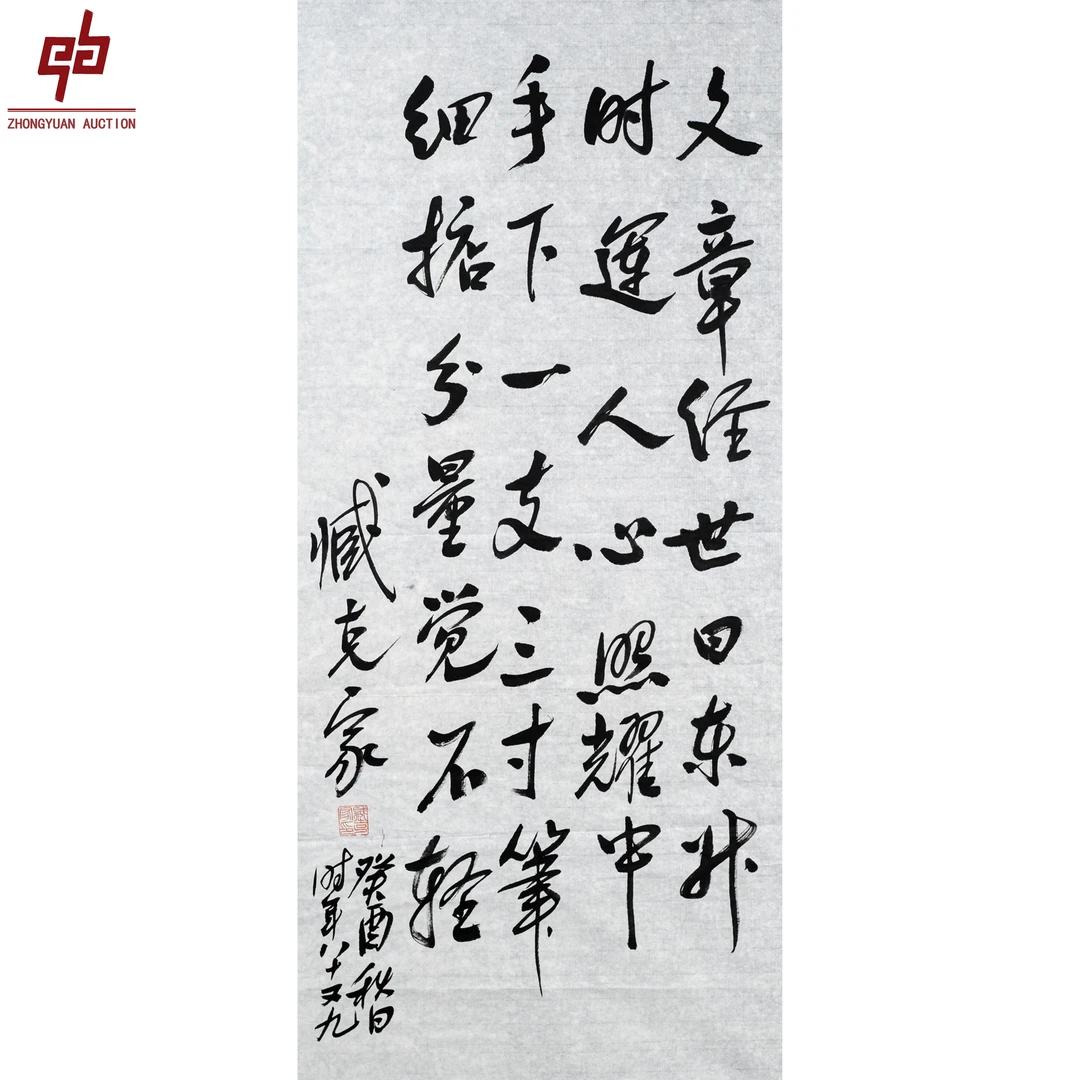 ZHONGYUAN AUCTION
文章经世日东升
时运人心照耀中
手下一支三寸笔
细掂分量觉不轻
臧克家
癸酉秋日
时年八十又九